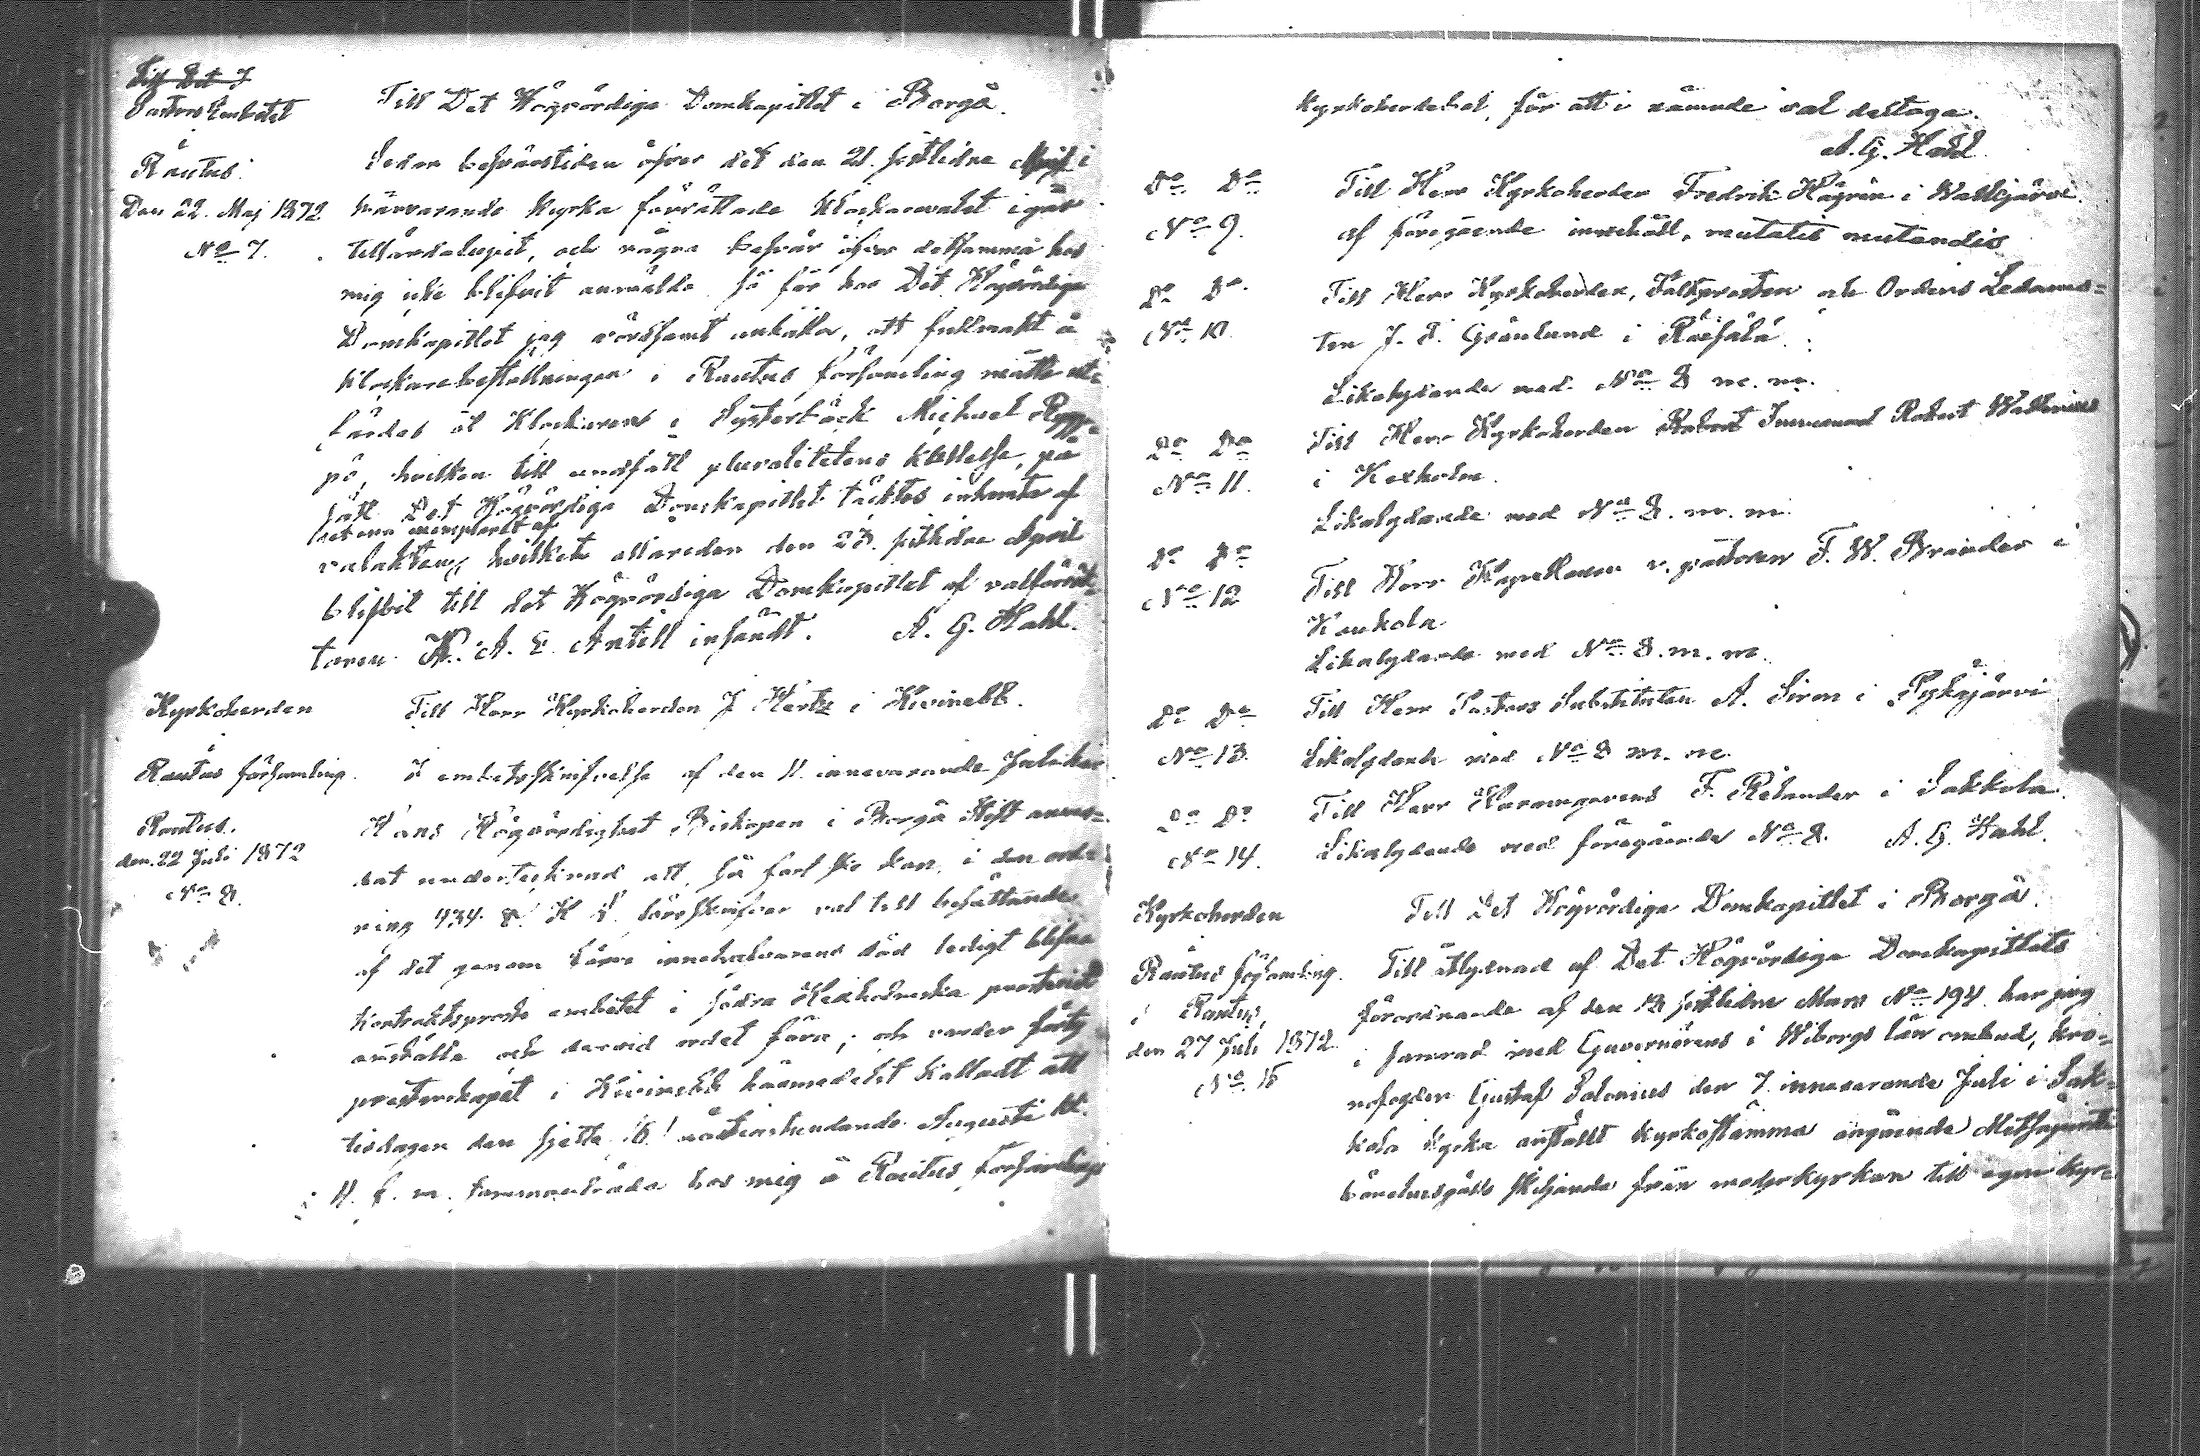 Till Det H
Pastors Embetet
i
Rautus.
Den 22. Maj 1872
No 7.
Till Det Högvördiga Domkapitlet i Borgå.
Sedan besvärstiden öfver det den 21. sistlidne April i
härvarande kyrka förrättade klockarevalet i går
tilländalupit, och några besvär öfver detsamma hos
mig icke blifvit anmälda, så får hos Det Högvördiga
Domkapitlet jag vördsamt anhålla, att fullmakt å
klockarebeställningen i Rautus församling måtte ut-
färdas åt Klockarens i Systerbäck Michael Rypp-
pö, hvilken till undfått pluralitetens kallelse, på
sätt Det Högvördiga Domkapitlet täcktes inhemta af
det ena exemplaret af
valakten, hvilket allareden den 23. sistlidne April
blifvit till det Högvördiga Domkapitlet af valförrät-
taren K. A. E. Antell insändt. A. G. Hahl.
Kyrkoherden
i
Rautus församling.
Rautus.
den 22 Juli 1872
No 8.
Till Herr Kyrkoherden J Hertz i Kivinebb.
I embetsskrifvelse af den 11. innevarande Juli har
Hans Högvördighet Biskopen i Borgå Stift anmo-
dat undertecknad att, så fort ske kan, i den ord-
ning 434 § K L. föreskrifver val till besättande
af det genom förre innehafvarens död ledigt blifna
Kontraktsprosts embetet i södra Kexholmska prosteriet
anställa, och dervid ordet föra; och varder förty
presterskapet i Kivinebb härmedelst kalladt att
tisdagen den sjette /6./ nästinstundande Augusti kl.
11. f. m. sammanträda hos mig å Rautus församlings
kyrkoherdebol, för att i nämnde val deltaga.
A. G. Hahl.
Do Do
No 9.
Till Herr Kyrkoherden Fredrik Hägrén i Walkjärvi.
af föregående innehåll, mutatis mutandis
Do Do
No 10.
Till Herr Kyrkoherden, Fältprosten och Ordens Ledamo-
ten J. F. Grönlund i Räisälä.
Likalydande med No 8 m. m.
Do Do
No 11.
Till Herr Kyrkoherden Robert Immanuel Robert Wallenius
i Kexholm.
Likalydande med No 8. m. m.
Do Do
No 12
Till Herr Kapellanen v. pastoren F. W. Brander i
Kaukola
Likalydande med No 8. m. m.
Do Do
No 13.
Till Herr Pastors Substituten A. Siren i Pyhäjärvi
Likalydande med No 8 m. m.
Do Do
No 14.
Till Herr Kammarerens F. Relander i Sakkola.
Likalydande med föregående No 8. A. G. Hahl.
Kyrkoherden
i
Rautus församling.
i Rautus,
den 27 Juli 1872
No 15
Till Det Högvördiga Domkapitlet i Borgå.
Till åtlydnad af Det Högvördiga Domkapitlets
förordnande af den 13 sistlidne Mars No 194. har jag
i samråd med Guvernörens i Wiborgs län ombud, kro-
nofogden Gustaf Polonius den 7. innevarande Juli i Sak-
kola kyrka anställt kyrkostämma angående Metsäpirtti
bönehusgälls skiljande från moderkyrkan till egen kyr-